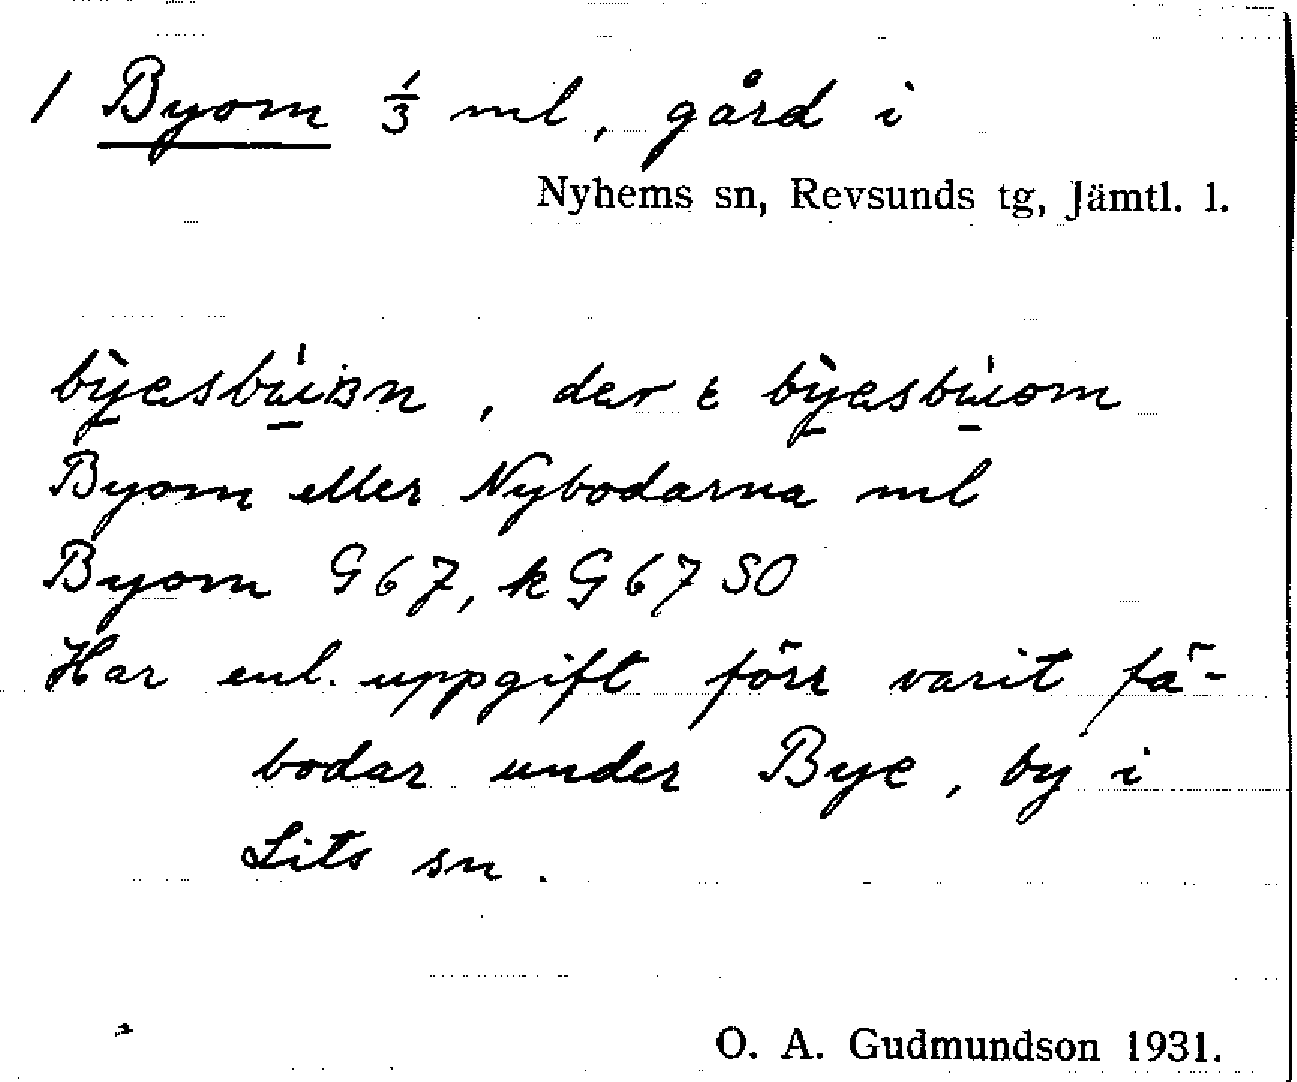 1 Byom ⅓ ml, gård i
Nyhems sn, Revsunds tg, Jämtl. l.
Byom eller Nybodarna ml
Byom G67, k G67 SO
Har enl. uppgift förr varit fä-
bodar under Bye, by i
Lits sn.
O. A. Gudmundson 1931.